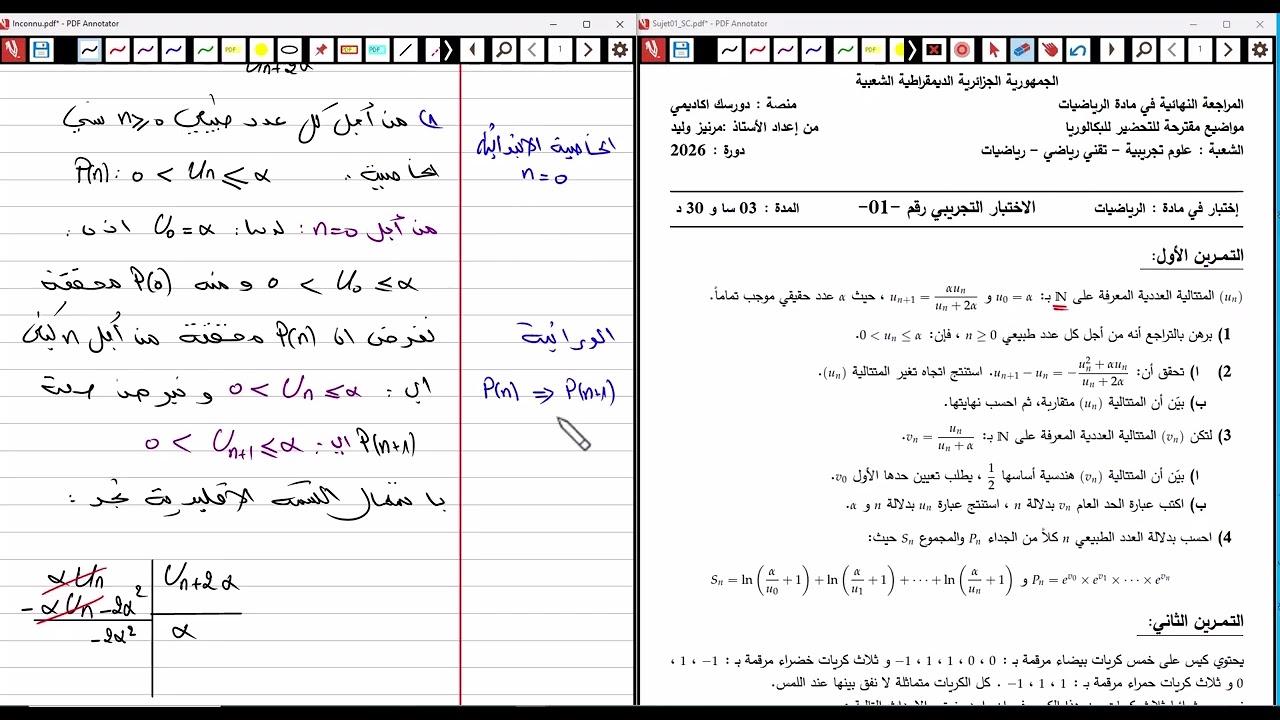 Inconnu.pdf* - PDF Annotator
Un+2α
1) من أجل كل عدد طبيعي n≥0 نسمي
الخاصية: P(n): 0 < Un ≤ α
من أجل n=0: لدينا: U0=α اذن:
0 < U0 ≤ α و منه P(0) محققة
نفرض ان P(n) محققة من أجل n كيفي
اي: 0 < Un ≤ α و نبرهن صحة
P(n+1) اي: 0 < Un+1 ≤ α
باستعمال القسمة الاقليدية نجد:
αUn | Un+2α
- αUn - 2α²
-2α² | α
الخاصية الابتدائية
n=0
الوراثية
P(n) ⇒ P(n+1)
Sujet01_SC.pdf* - PDF Annotator
الجمهورية الجزائرية الديمقراطية الشعبية
المراجعة النهائية في مادة الرياضيات
منصة : دورسك اكاديمي
مواضيع مقترحة للتحضير للبكالوريا
من إعداد الأستاذ :مرنيز وليد
الشعبة : علوم تجريبية – تقني رياضي – رياضيات
دورة : 2026
إختبار في مادة : الرياضيات
الاختبار التجريبي رقم –01-
المدة : 03 سا و 30 د
التمرين الأول:
(un) المتتالية العددية المعرفة على ℕ بـ: u0 = α و un+1 = αun / (un + 2α) ، حيث α عدد حقيقي موجب تماماً.
1) برهن بالتراجع أنه من أجل كل عدد طبيعي n ≥ 0 ، فإن: 0 < un ≤ α.
2) ا) تحقق أن: un+1 − un = −(un² + αun) / (un + 2α). استنتج اتجاه تغير المتتالية (un).
ب) بيّن أن المتتالية (un) متقاربة، ثم احسب نهايتها.
3) لتكن (vn) المتتالية العددية المعرفة على ℕ بـ: vn = un / (un + α).
ا) بيّن أن المتتالية (vn) هندسية أساسها 1/2 ، يطلب تعيين حدها الأول v0.
ب) اكتب عبارة الحد العام vn بدلالة n ، استنتج عبارة un بدلالة n و α.
4) احسب بدلالة العدد الطبيعي n كلاً من الجداء Pn والمجموع Sn حيث:
Sn = ln(α/u0 + 1) + ln(α/u1 + 1) + ··· + ln(α/un + 1) و Pn = e^v0 × e^v1 × ··· × e^vn
التمرين الثاني:
يحتوي كيس على خمس كريات بيضاء مرقمة بـ : 0 ، 0 ، 1 ، 1 ، 1− و ثلاث كريات خضراء مرقمة بـ : 1− ، 1 ،
0 و ثلاث كريات حمراء مرقمة بـ : 1 ، 1 ، 1− . كل الكريات متماثلة لا نفق بينها عند اللمس.